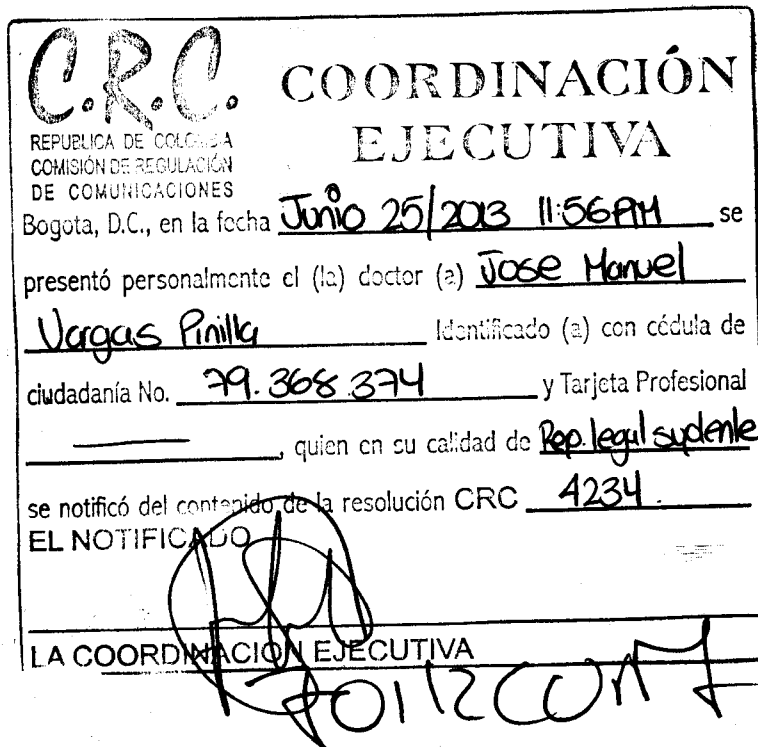 C.R.C.
REPUBLICA DE COLOMBIA
COMISIÓN DE REGULACIÓN
DE COMUNICACIONES
COORDINACIÓN
EJECUTIVA
Bogota, D.C., en la fecha Junio 25/2013 11:56AM se
presentó personalmente el (la) doctor (a) Jose Manuel
Vargas Pinilla Identificado (a) con cédula de
ciudadanía No. 79.368.374 y Tarjeta Profesional
, quien en su calidad de Rep. legal suplente
se notificó del contenido de la resolución CRC 4234.
EL NOTIFICADO
LA COORDINACION EJECUTIVA